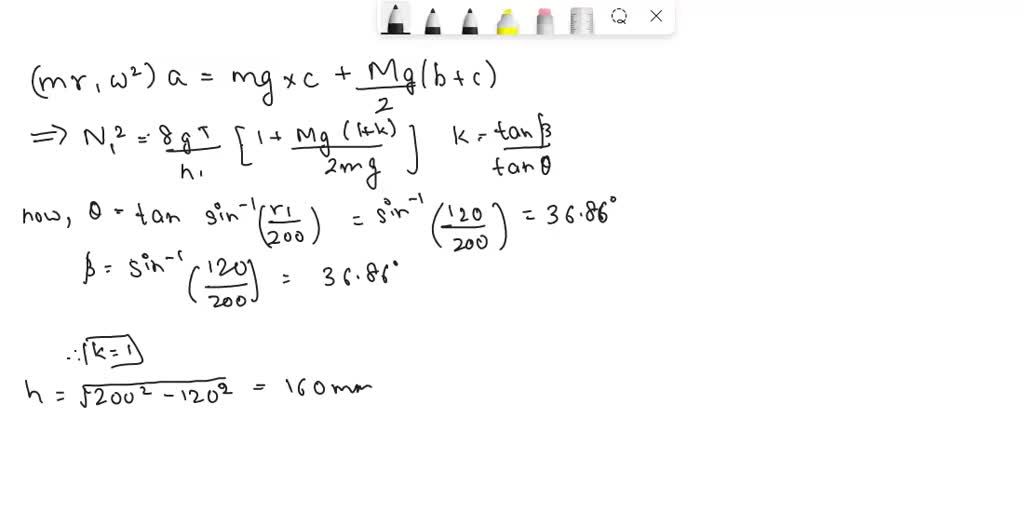 (mr₁ω²) a = mg × c + Mg/2 (b+c)
⇒ N₁² = 8gT/h₁ [1 + Mg (1+k)/2mg] k = tan β/tan θ
now, θ = tan sin⁻¹(r1/200) = sin⁻¹(120/200) = 36.86°
β = sin⁻¹(120/200) = 36.86°
∴ k=1
h = √200² - 120² = 160mm